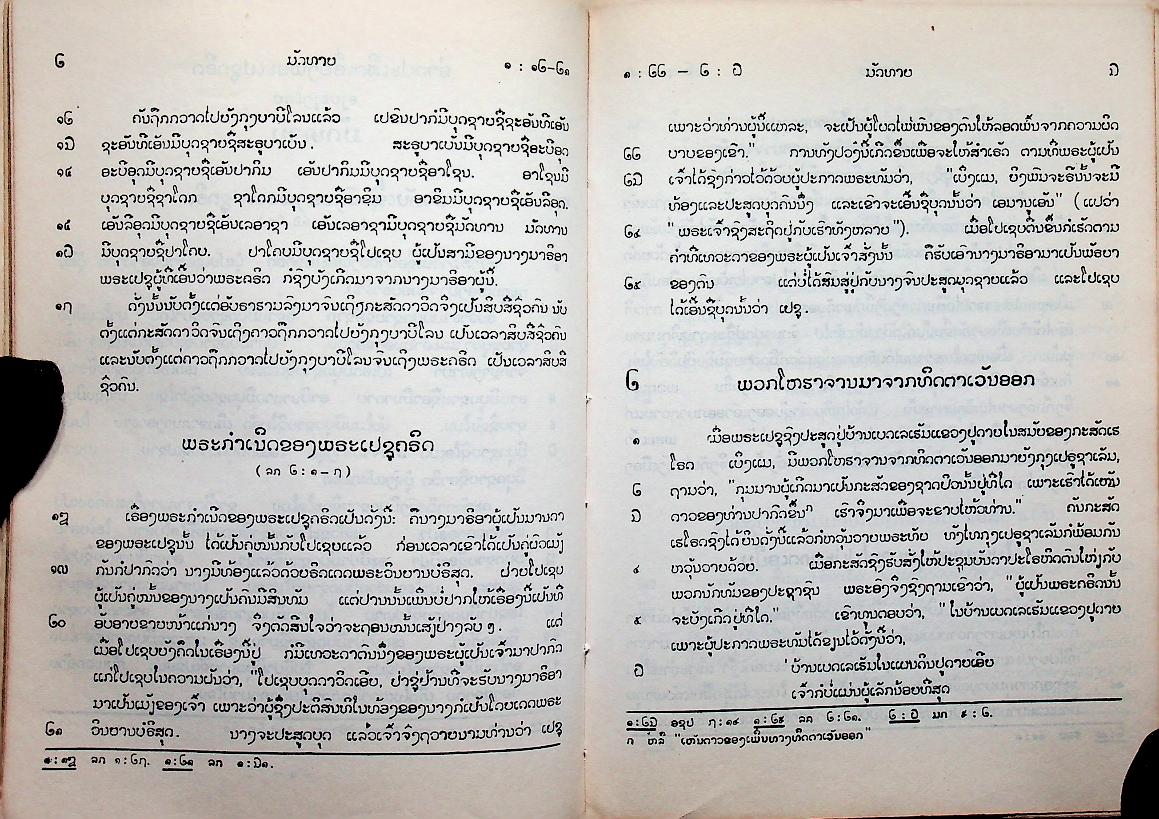 ໒ ມັດທາຍ ໑ : ໑໒-໒໑
໑໒ ຄັນຖືກກວາດໄປຍັງກຸງບາບີໂລນແລ້ວ ເຢຂົນຢາກໍມີບຸດຊາຍຊື່ຊະອັນທີເອັນ
໑໓ ຊະອັນທີເອັນມີບຸດຊາຍຊື່ສະຣູບາເບັນ. ສະຣູບາເບັນມີບຸດຊາຍຊື່ອະບີອຸດ
໑໔ ອະບີອຸດມີບຸດຊາຍຊື່ເອັນຢາກິມ ເອັນຢາກິມມີບຸດຊາຍຊື່ອາໂຊນ. ອາໂຊນມີ
ບຸດຊາຍຊື່ຊາໂດກ ຊາໂດກມີບຸດຊາຍຊື່ອາຂິມ ອາຂິມມີບຸດຊາຍຊື່ເອັນລີອຸດ.
໑໕ ເອັນລີອຸດມີບຸດຊາຍຊື່ເອັນເລອາຊາ ເອັນເລອາຊາມີບຸດຊາຍຊື່ມັດທານ ມັດທານ
໑໖ ມີບຸດຊາຍຊື່ຢາໂຄບ. ຢາໂຄບມີບຸດຊາຍຊື່ໂຢເຊບ ຜູ້ເປັນສາມີຂອງນາງມາຣິອາ
ພຣະເຢຊູຜູ້ທີ່ເອີ້ນວ່າພຣະຄຣິດ ກໍຊົງບັງເກີດມາຈາກນາງມາຣິອາຜູ້ນີ້.
໑໗ ດັ່ງນັ້ນນັບຕັ້ງແຕ່ອັບຣາຮາມລົງມາຈົນເຖິງກະສັດດາວິດຈຶ່ງເປັນສິບສີ່ຊົ່ວຄົນ ນັບ
ຕັ້ງແຕ່ກະສັດດາວິດຈົນເຖິງຄາວຖືກກວາດໄປຍັງກຸງບາບີໂລນ ເປັນເວລາສິບສີ່ຊົ່ວຄົນ
ແລະນັບຕັ້ງແຕ່ຄາວຖືກກວາດໄປຍັງກຸງບາບີໂລນຈົນເຖິງພຣະຄຣິດ ເປັນເວລາສິບສີ່
ຊົ່ວຄົນ.
ພຣະກຳເນີດຂອງພຣະເຢຊູຄຣິດ
( ລກ ໒ : ໑-໗ )
໑໘ ເຣື່ອງພຣະກຳເນີດຂອງພຣະເຢຊູຄຣິດເປັນດັ່ງນີ້: ຄືນາງມາຣິອາຜູ້ເປັນມານດາ
ຂອງພຣະເຢຊູນັ້ນ ໄດ້ເປັນຄູ່ໝັ້ນກັບໂຢເຊບແລ້ວ ກ່ອນເວລາເຂົາໄດ້ເປັນຄູ່ຜົວເມັຽ
໑໙ ກັນກໍປາກົດວ່າ ນາງມີທ້ອງແລ້ວດ້ວຍຣິດເດດພຣະວິນຍານບໍຣິສຸດ. ຝ່າຍໂຢເຊບ
ຜູ້ເປັນຄູ່ໝັ້ນຂອງນາງເປັນຄົນມີສິນທັມ ແຕ່ປານນັ້ນເພິ່ນບໍ່ຢາກໃຫ້ເຣື່ອງນີ້ເປັນທີ່
໒໐ ອັບອາຍຂາຍໜ້າແກ່ນາງ ຈຶ່ງຕັດສິນໃຈວ່າຈະຖອນໝັ້ນເສັຽຢ່າງລັບ ໆ. ແຕ່
ເມື່ອໂຢເຊບຍັງຄິດໃນເຣື່ອງນີ້ຢູ່ ກໍມີເທວະດາຕົນນຶ່ງຂອງພຣະຜູ້ເປັນເຈົ້າມາປາກົດ
ແກ່ໂຢເຊບໃນຄວາມຝັນວ່າ, "ໂຢເຊບບຸດດາວິດເອີຍ, ຢ່າຊູ່ຢ້ານທີ່ຈະຮັບນາງມາຣິອາ
ມາເປັນເມັຽຂອງເຈົ້າ ເພາະວ່າຜູ້ຊຶ່ງປະຕິສົນທິໃນທ້ອງຂອງນາງກໍເປັນໂດຍເດດພຣະ
໒໑ ວິນຍານບໍຣິສຸດ. ນາງຈະປະສູດບຸດ ແລ້ວເຈົ້າຈົ່ງຖວາຍນາມທ່ານວ່າ ເຢຊູ
໑ : ໑໘ ລກ ໑ : ໒໗. ໑ : ໒໑ ລກ ໑ : ໓໑.
໑ : ໒໒ — ໒ : ໖ ມັດທາຍ ໓
ເພາະວ່າທ່ານຜູ້ນີ້ແຫລະ, ຈະເປັນຜູ້ໂຜດໄພ່ພົນຂອງຕົນໃຫ້ລອດພົ້ນຈາກຄວາມຜິດ
໒໒ ບາບຂອງເຂົາ." ການທັງປວງນີ້ເກີດຂຶ້ນເພື່ອຈະໃຫ້ສຳເຣັດ ຕາມທີ່ພຣະຜູ້ເປັນ
໒໓ ເຈົ້າໄດ້ຊົງກ່າວໄວ້ດ້ວຍຜູ້ປະກາດພຣະທັມວ່າ, "ເບິ່ງແມ, ຍິງພົມຈະຣີນັ້ນຈະມີ
ທ້ອງແລະປະສູດບຸດຄົນນຶ່ງ ແລະເຂົາຈະເອີ້ນຊື່ບຸດນັ້ນວ່າ ເອມານູເອັນ" ( ແປວ່າ
໒໔ " ພຣະເຈົ້າຊົງສະຖິດຢູ່ກັບເຮົາທັງຫລາຍ "). ເມື່ອໂຢເຊບຕື່ນຂຶ້ນກໍເຮັດຕາມ
ຄຳທີ່ເທວະດາຂອງພຣະຜູ້ເປັນເຈົ້າສັ່ງນັ້ນ ຄືຮັບເອົານາງມາຣິອາມາເປັນພັຣຍາ
໒໕ ຂອງຕົນ ແຕ່ບໍ່ໄດ້ສົມສູ່ຢູ່ກັບນາງຈົນປະສູດບຸດຊາຍແລ້ວ ແລະໂຢເຊບ
ໄດ້ເອີ້ນຊື່ບຸດນັ້ນວ່າ ເຢຊູ.
໒ ພວກໂຫຣາຈານມາຈາກທິດຕາເວັນອອກ
໑ ເມື່ອພຣະເຢຊູຊົງປະສູດຢູ່ບ້ານເບດເລເຮັມແຂວງຢູດາຍໃນສມັຍຂອງກະສັດເຮ
ໂຣດ ເບິ່ງແມ, ມີພວກໂຫຣາຈານຈາກທິດຕາເວັນອອກມາຍັງກຸງເຢຣູຊາເລັມ,
໒ ຖາມວ່າ, "ກຸມມານຜູ້ເກີດມາເປັນກະສັດຂອງຊາດຢິວນັ້ນຢູ່ທີ່ໃດ ເພາະເຮົາໄດ້ເຫັນ
໓ ດາວຂອງທ່ານປາກົດຂຶ້ນ ເຮົາຈຶ່ງມາເພື່ອຈະຂາບໄຫວ້ທ່ານ." ຄັນກະສັດ
ເຮໂຣດຊົງໄດ້ຍິນດັ່ງນີ້ແລ້ວກໍຫວຸ້ນວາຍພຣະທັຍ ທັງໄທກຸງເຢຣູຊາເລັມກໍພ້ອມກັນ
໔ ຫວຸ້ນວາຍດ້ວຍ. ເມື່ອກະສັດຊົງຮັບສັ່ງໃຫ້ປະຊຸມບັນດາປະໂຣຫິດຕົນໃຫຽ່ກັບ
ພວກນັກທັມຂອງປະຊາຊົນ ພຣະອົງຈຶ່ງຊົງຖາມເຂົາວ່າ, "ຜູ້ເປັນພຣະຄຣິດນັ້ນ
໕ ຈະບັງເກີດຢູ່ທີ່ໃດ." ເຂົາທູນຕອບວ່າ, "ໃນບ້ານເບດເລເຮັມແຂວງຢູດາຍ
ເພາະຜູ້ປະກາດພຣະທັມໄດ້ຂຽນໄວ້ດັ່ງນີ້ວ່າ,
໖ ່ບ້ານເບດເລເຮັມໃນແຜນດິນຢູດາຍເອີຍ
ເຈົ້າກໍບໍ່ແມ່ນຜູ້ເລັກນ້ອຍທີ່ສຸດ
໑ : ໒໓ ອຊຢ ໗ : ໑໔ ໑ : ໒໕ ລກ ໒ : ໒໑. ໒ : ໖ ມກ ໕ : ໒.
ກ ຫລື "ເຫັນດາວຂອງເພິ່ນທາງທິດຕາເວັນອອກ"